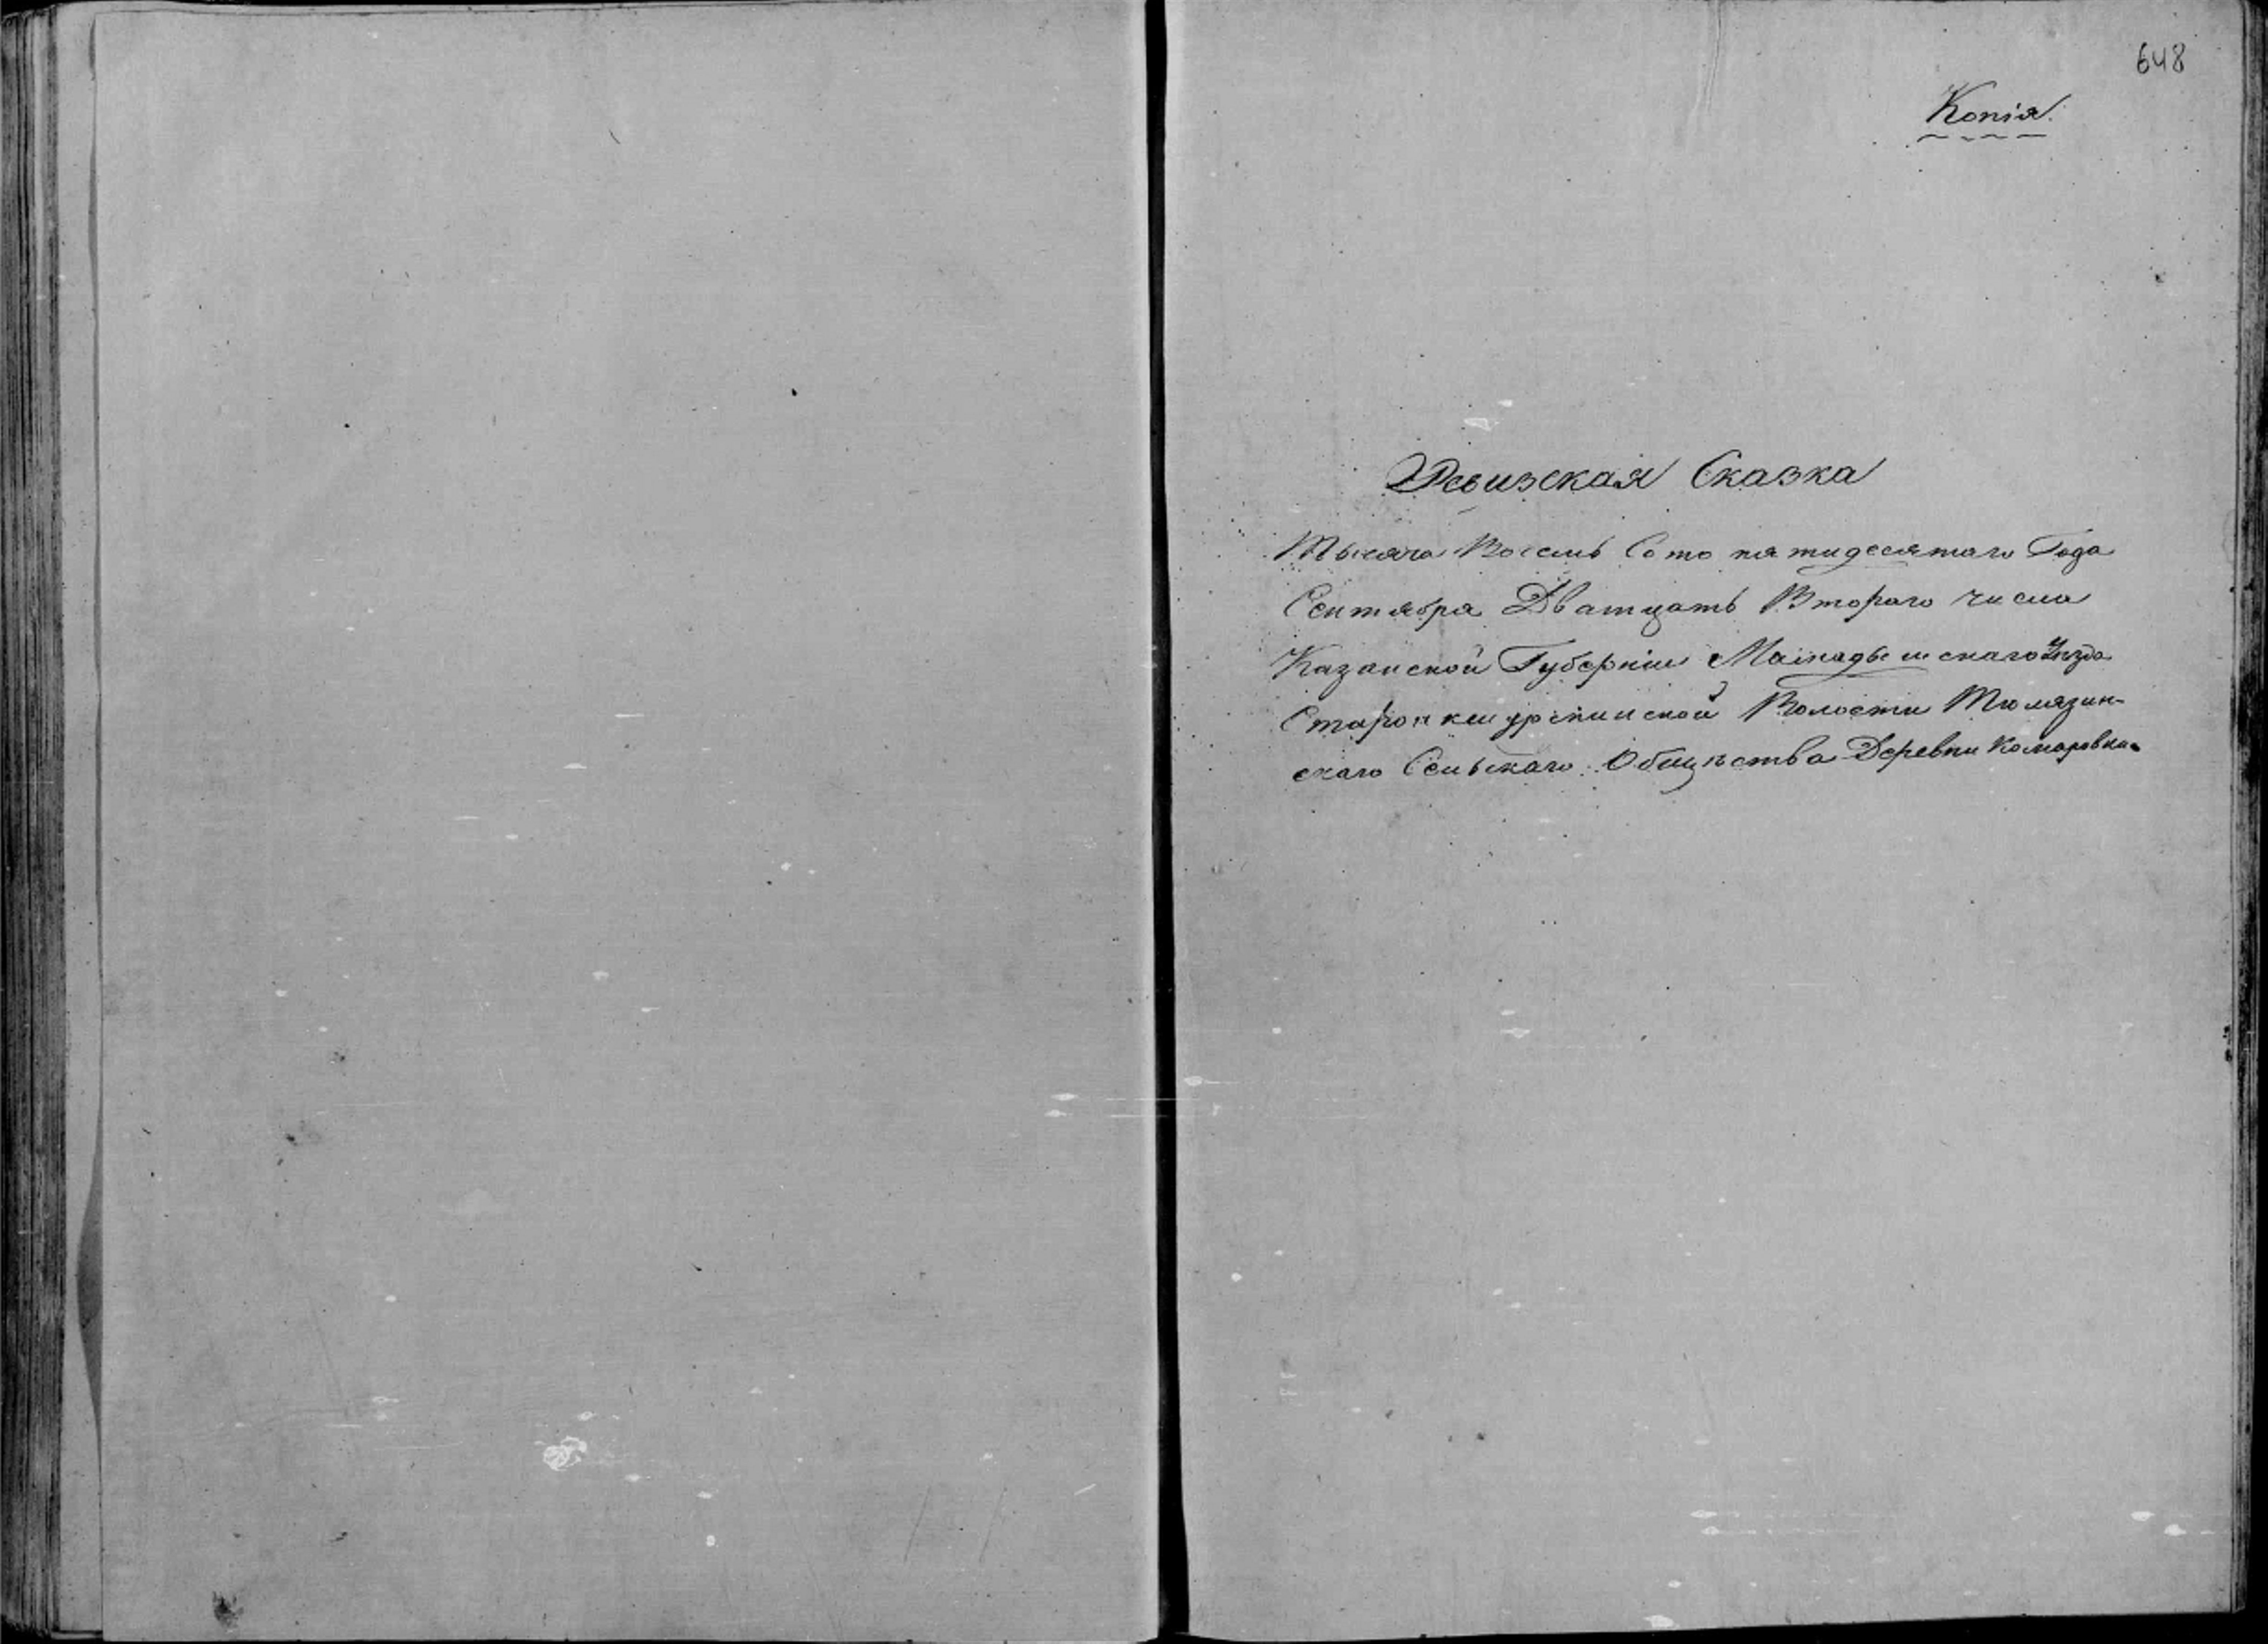 648
Копія.
Ревизская Сказка
Тысяча Восемь Сотъ пятидесятаго Года
Сентября Дватцать Втораго числа
Казанской Губерніи Мамадышскаго Уезда
Волости Тюлязин-
скаго Сельскаго Общества Деревни Комаровка